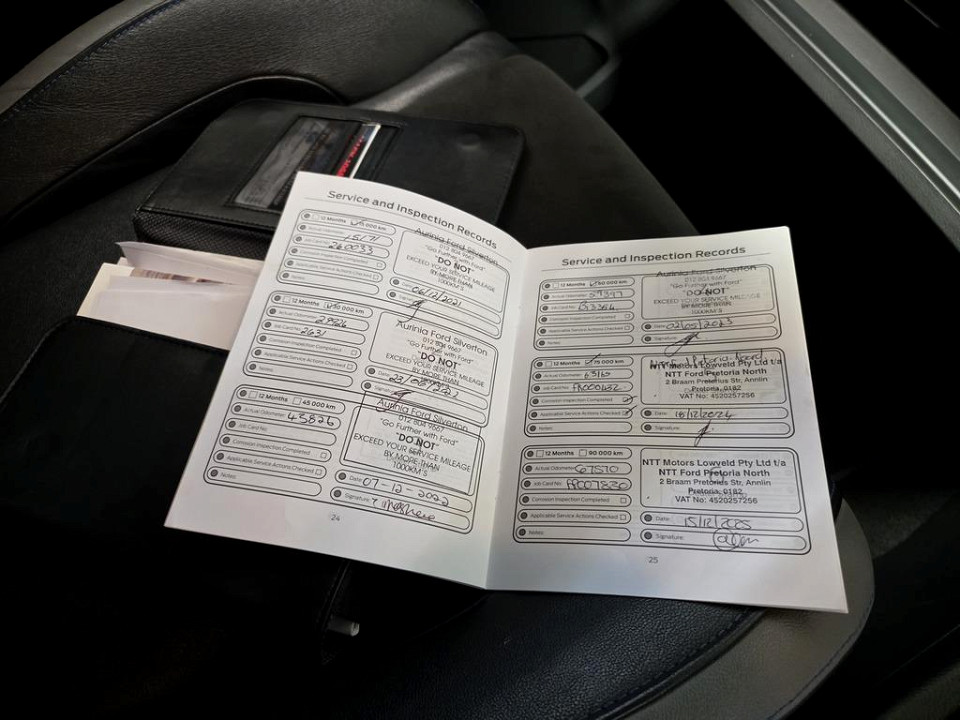 Service and Inspection Records
12 Months 15 000 km
Actual Odometer 15171
Job Card No 260033
Corrosion Inspection Completed
Applicable Service Actions Checked
Notes
Aurinia Ford Silverton
012 804 9667
"Go Further with Ford"
"DO NOT"
EXCEED YOUR SERVICE MILEAGE
BY MORE THAN
1000KM'S
Date 06/12/2021
Signature
12 Months 30 000 km
Actual Odometer
Job Card No 2631
Corrosion Inspection Completed
Applicable Service Actions Checked
Notes
Aurinia Ford Silverton
012 804 9667
"Go Further with Ford"
"DO NOT"
EXCEED YOUR SERVICE MILEAGE
BY MORE THAN
1000KM'S
Date
Signature
12 Months 45 000 km
Actual Odometer 43826
Job Card No
Corrosion Inspection Completed
Applicable Service Actions Checked
Notes
Aurinia Ford Silverton
012 804 9667
"Go Further with Ford"
"DO NOT"
EXCEED YOUR SERVICE MILEAGE
BY MORE THAN
1000KM'S
Date 07-12-2022
Signature
24
Service and Inspection Records
12 Months 60 000 km
Actual Odometer
Job Card No
Corrosion Inspection Completed
Applicable Service Actions Checked
Notes
Aurinia Ford Silverton
012 804 9667
"Go Further with Ford"
"DO NOT"
EXCEED YOUR SERVICE MILEAGE
BY MORE THAN
1000KM'S
Date 02/05/2023
Signature
12 Months 75 000 km
Actual Odometer
Job Card No
Corrosion Inspection Completed
Applicable Service Actions Checked
Notes
NTT Motors Lowveld Pty Ltd t/a
NTT Ford Pretoria North
2 Braam Pretorius Str, Annlin
Pretoria, 0182
VAT No: 4520257256
Date 18/12/2024
Signature
12 Months 90 000 km
Actual Odometer 67570
Job Card No
Corrosion Inspection Completed
Applicable Service Actions Checked
Notes
NTT Motors Lowveld Pty Ltd t/a
NTT Ford Pretoria North
2 Braam Pretorius Str, Annlin
Pretoria, 0182
VAT No: 4520257256
Date 15/12/2025
Signature
25